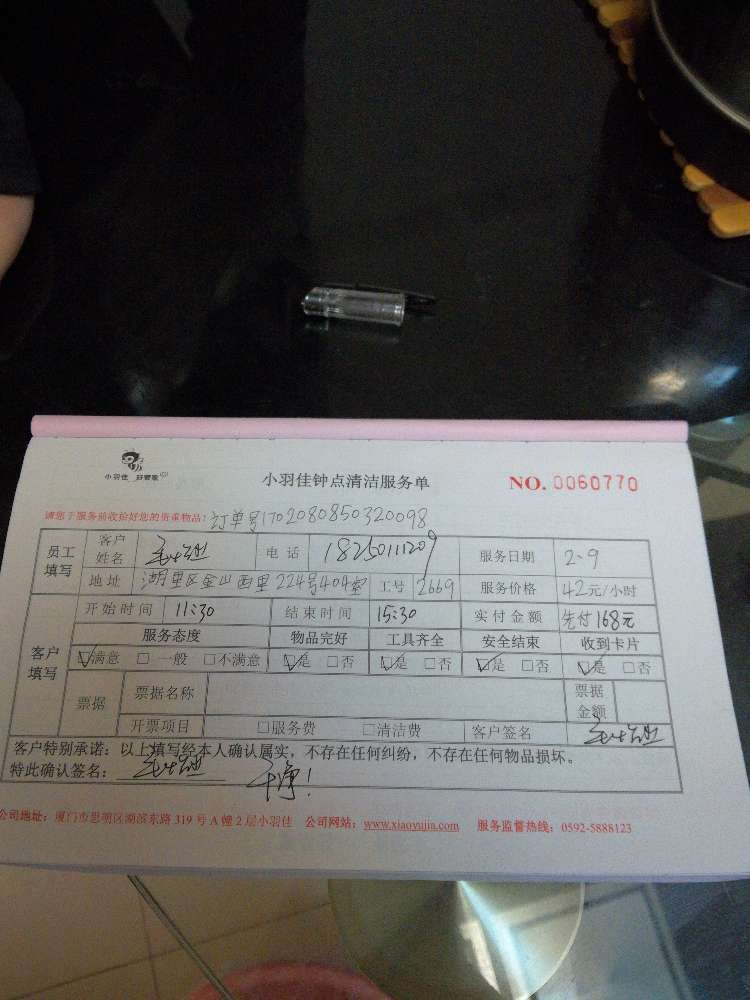 小羽佳 好管家
小羽佳钟点清洁服务单
NO. 0060770
请您于服务前收拾好您的贵重物品: 订单号1702080850320098
员工填写 客户姓名 电话 18250111209 服务日期 2-9
地址 湖里区金山西里224号404室 工号 2669 服务价格 42元/小时
客户填写 开始时间 11:30 结束时间 15:30 实付金额 先付168元
服务态度 物品完好 工具齐全 安全结束 收到卡片
☑满意 □一般 □不满意 ☑是 □否 ☑是 □否 ☑是 □否 ☑是 □否
票据 票据名称 票据金额
开票项目 □服务费 □清洁费 客户签名
客户特别承诺:以上填写经本人确认属实,不存在任何纠纷,不存在任何物品损坏。
特此确认签名: 干净!
公司地址:厦门市思明区湖滨东路319号A幢2层小羽佳 公司网站:www.xiaoyujia.com 服务监督热线:0592-5888123